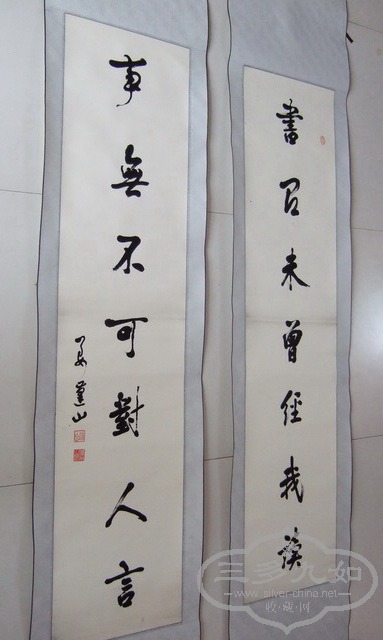 書有未曾經我讀
事無不可對人言
三多九如
www.silver-china.net
收藏网